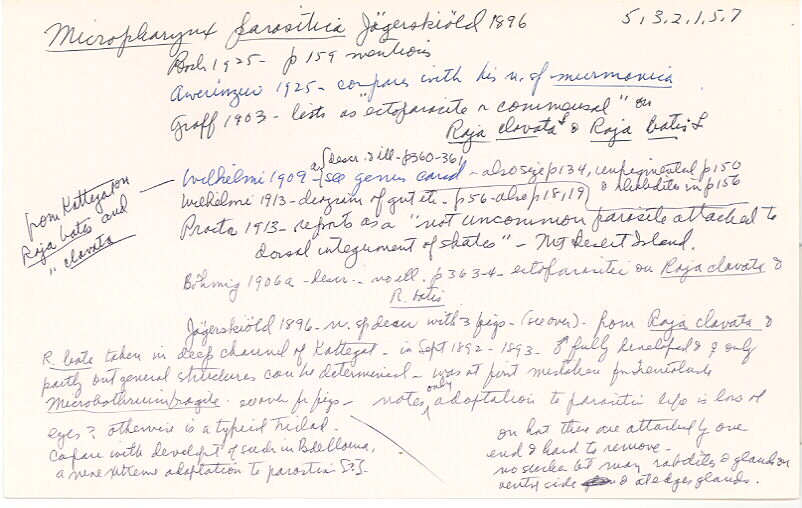 Micropharynx parasitica Jägerskiöld 1896 5,3,2,1,5,7
Bock 1925 - p 159 mentions
Awerinzew 1925 - compares with his n. sp murmanica
Graff 1903 - lists as "ectoparasite or commensal" on
Raja clavata L & Raja batis L
Wilhelmi 1909 - (see genus card - also size p134, unpigmented p150
as descr. & ill - p360-361
Wilhelmi 1913 - diagram of gut etc - p56 - also p18, 19) & rhabdites in p156
from Kattegat on
Raja batis and
" clavata
Procter 1913 - reports as a "not uncommon parasite attached to
dorsal integument of skates" - Mt Desert Island.
Böhmig 1906a - descr. - no ill. p 363-4 - ectoparasitic on Raja clavata &
R. batis
Jägerskiöld 1896 - n. sp descr with 3 figs - (see over) - from Raja clavata &
R. batis taken in deep channel of Kattegat - in Sept 1892 - 1893. ♂ fully developed & ♀ only
partly but general structures can be determined - was at first mistaken for trematode
Microbothrium fragile - see over for figs - notes only adaptation to parasitic life is loss of
eyes & otherwise is a typical triclad.
Compare with developt of sucker in Bdelloura,
a more extreme adaptation to parasitism
on host these are attached by one
end & hard to remove -
no sucker but many rabdites & glands on
ventr side & at edges glands.